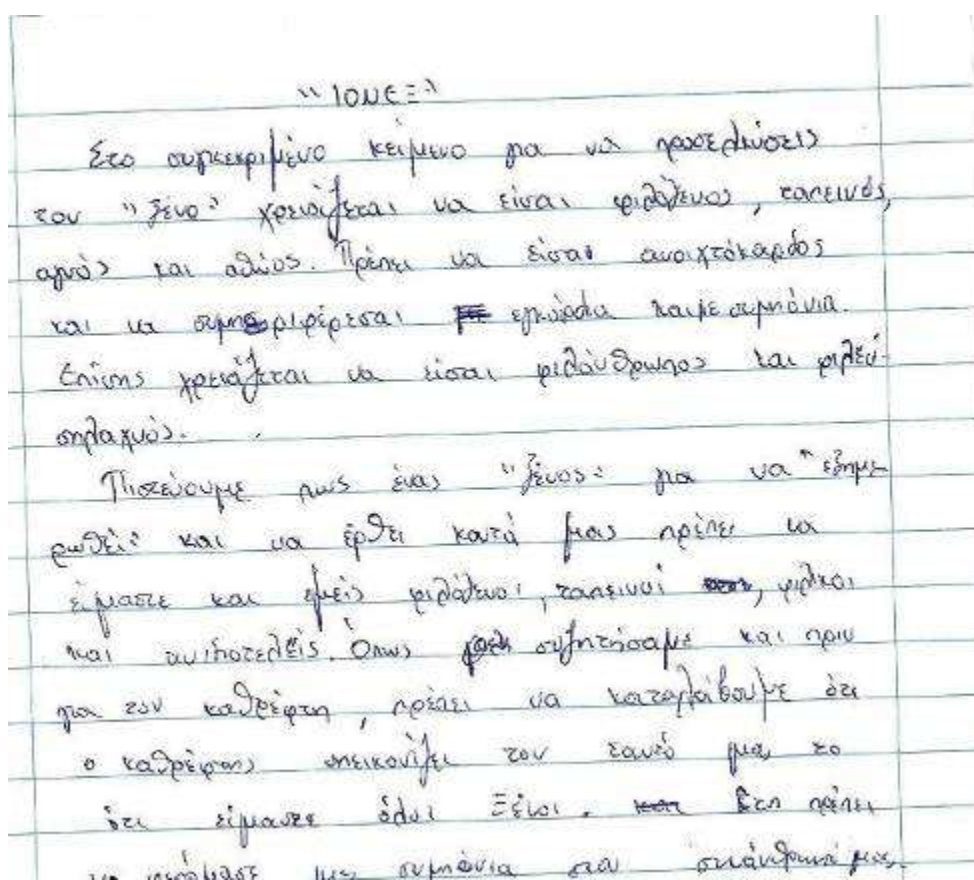 "ΙΟΝΕΞ"
Στο συγκεκριμένο κείμενο για να προσελκύσεις
τον "ξένο" χρειάζεται να είσαι φιλόξενος, ταπεινός,
αγνός και αθώος. Πρέπει να είσαι ανοιχτόκαρδος
και να συμπεριφέρεσαι εγκάρδια και με συμπόνια.
Επίσης χρειάζεται να είσαι φιλάνθρωπος και φιλεύ-
σπλαχνός.
Πιστεύουμε πως ένας "ξένος" για να "εξημε-
ρωθεί" και να έρθει κατά μας πρέπει να
είμαστε και εμείς φιλόξενοι, ταπεινοί, φιλικοί
και ανιδιοτελείς. Όπως συζητήσαμε και πριν
για τον καθρέφτη, πρέπει να καταλάβουμε ότι
ο καθρέφτης απεικονίζει τον εαυτό μας το
ότι είμαστε όλοι Ξένοι. Έτσι πρέπει
να με συμπόνια